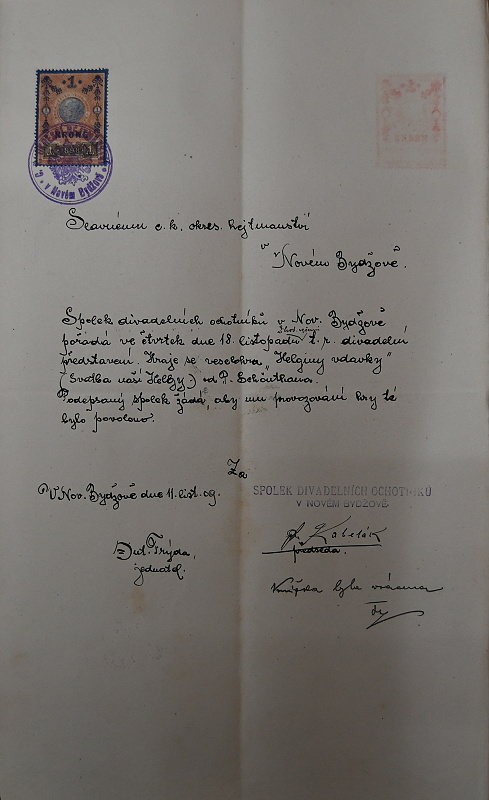 1
KORONA
v Novém Bydžově
Slavnému c. k. okres. hejtmanství
v
Novém Bydžově.
Spolek divadelních ochotníků v Nov. Bydžově
pořádá ve čtvrtek dne 18. listopadu t. r. divadelní
představení. Hraje se veselohra „Helginy vdavky"
(Svatba naší Helgy) od P. Schönthana.
Podepsaný spolek žádá, aby mu provozování hry té
bylo povoleno.
Za
V Nov. Bydžově dne 11. list. 09.
SPOLEK DIVADELNÍCH OCHOTNÍKŮ
V NOVÉM BYDŽOVĚ.
Kobelák
předseda.
Ant. Frýda,
jednatel.
byla vrácena